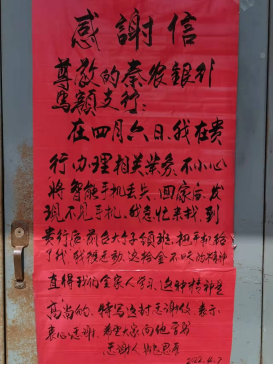 感謝信
尊敬的秦农銀行
鸟颡支行：
在四月六日，我在贵
行，办理相关業务，不小心
将智能手机丢失，回家后，发
现不见手机，我急忙来找，到
贵行后前台大个子领班，把手机给
了我，我很逺动，这拾金不昧的精神
直得我们全家人学习，这种精神是
高尚的，特写这封感谢信，表示
衷心感谢，希望大家向他学习
感谢人